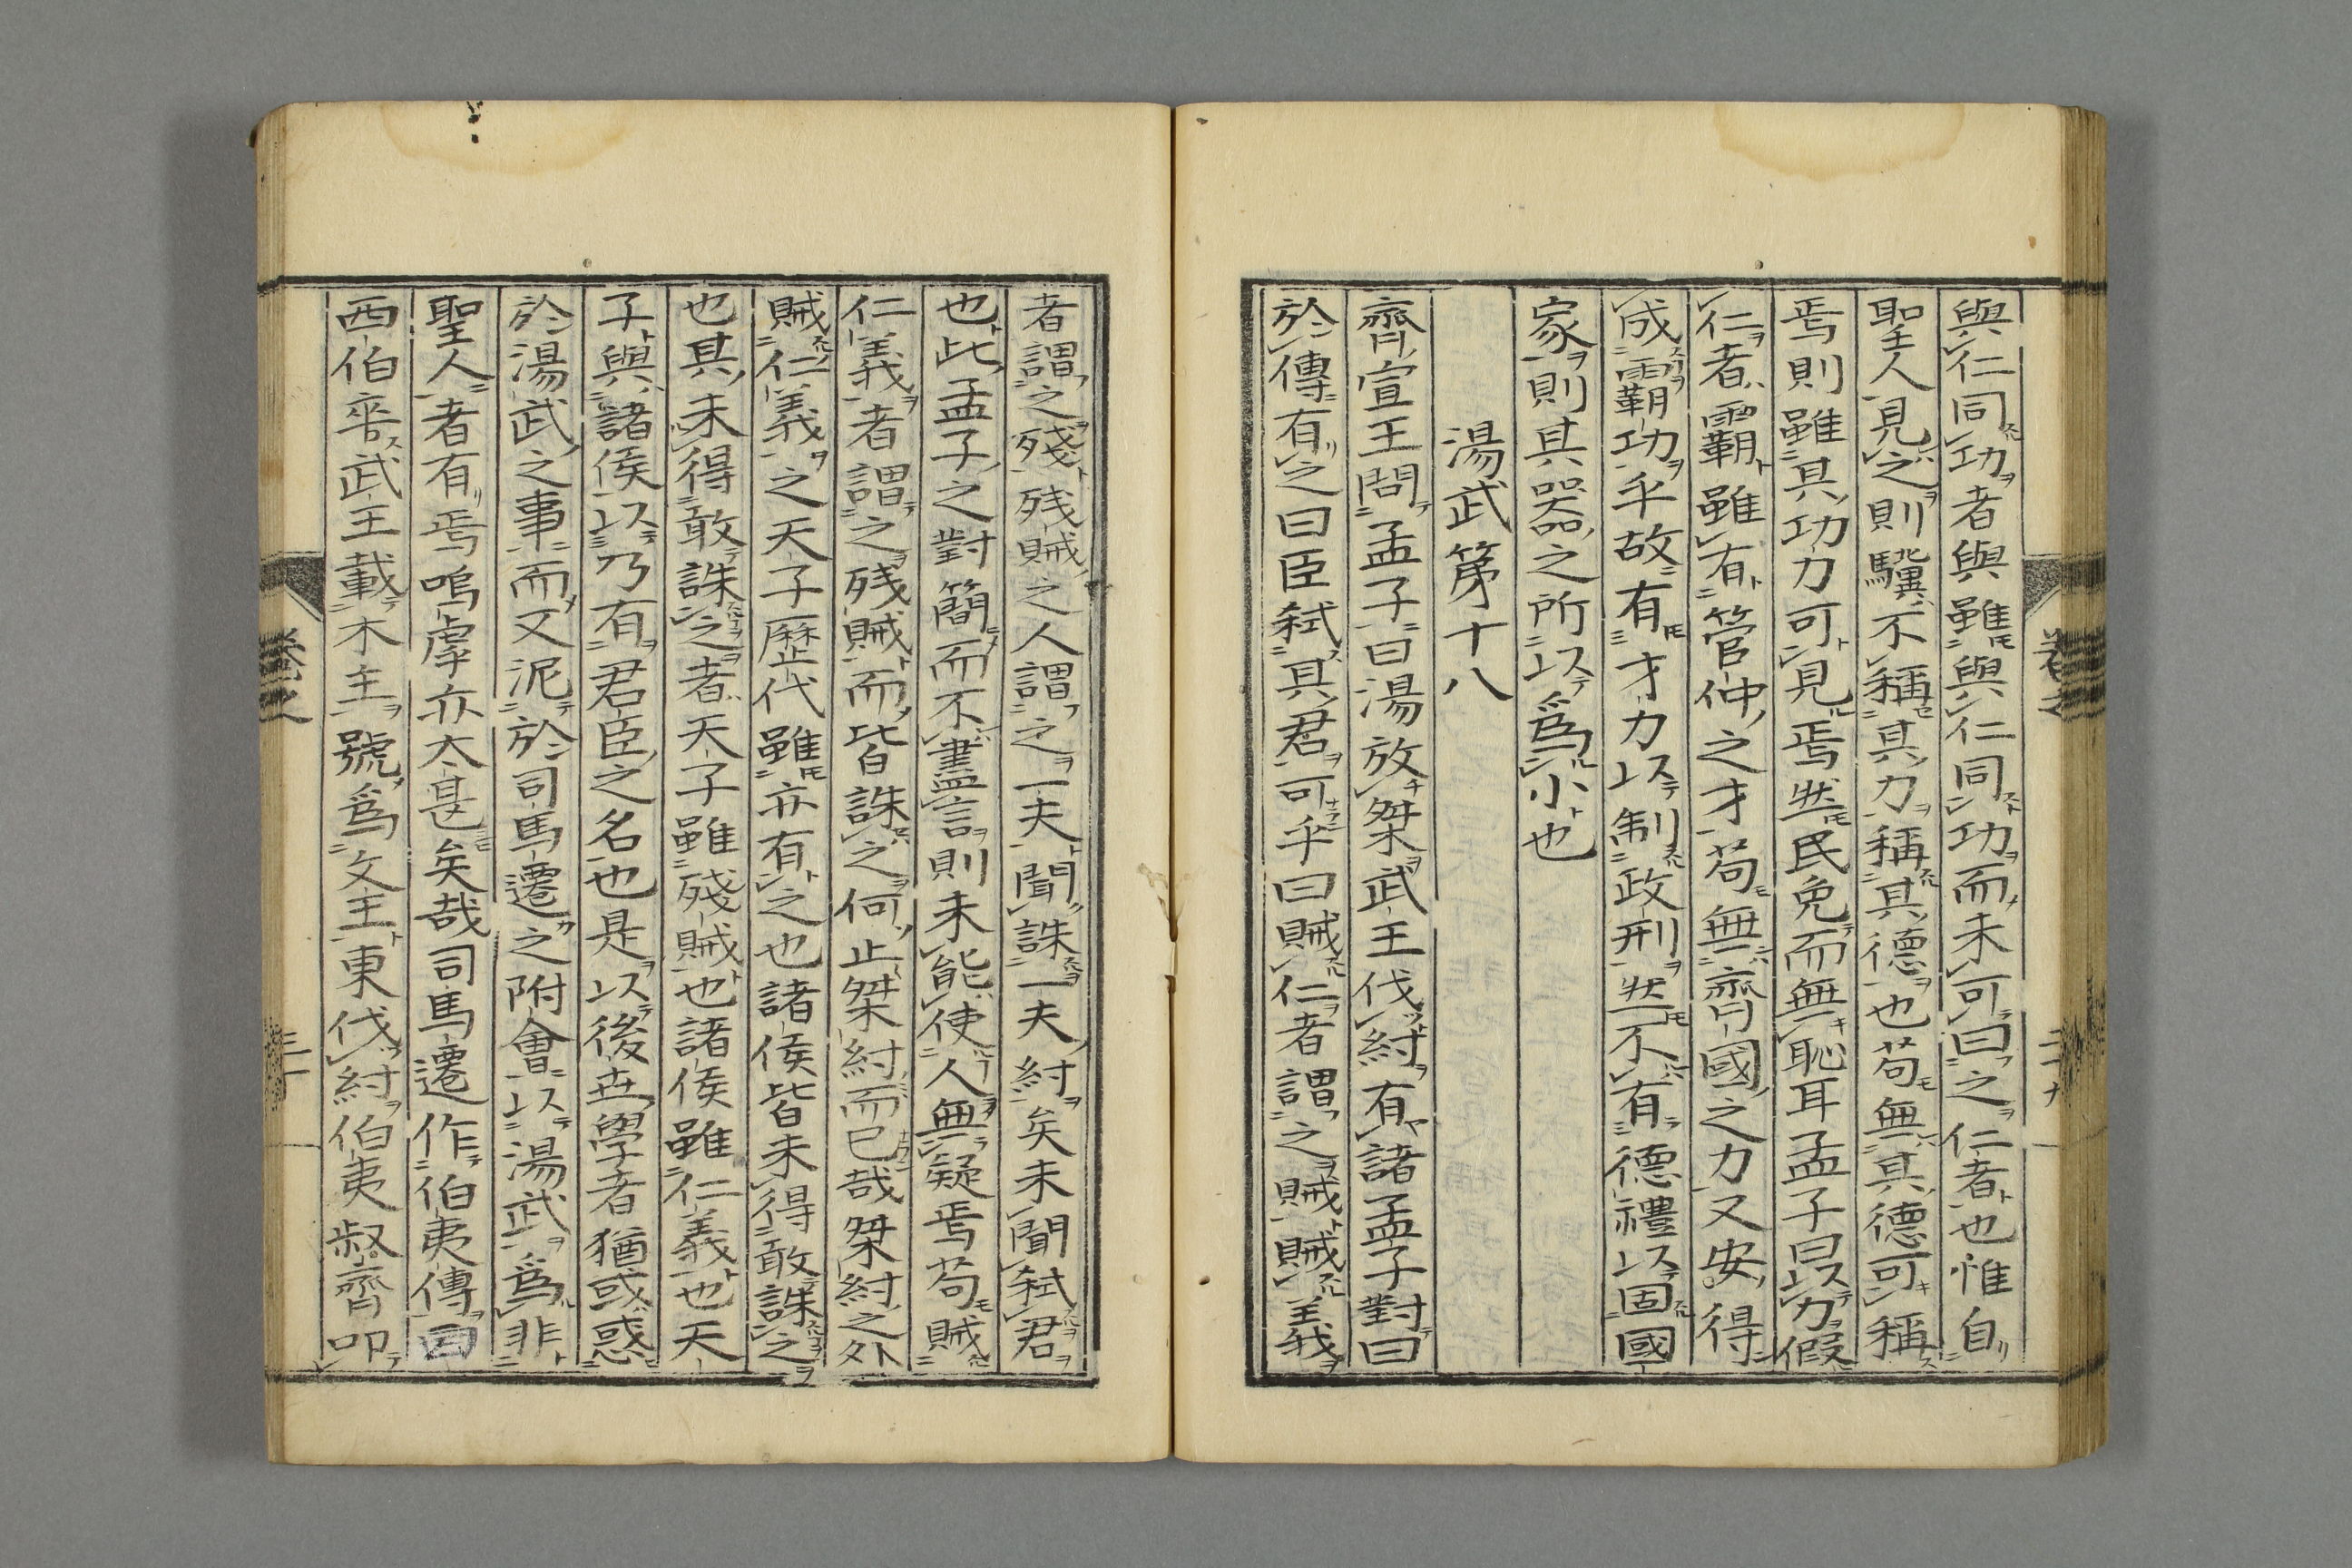 與仁同功者與雖與仁同功而未可曰之仁者也惟自
聖人見之則驥不稱其力稱其德也苟無其德可稱
焉則雖其功力可見焉然民免而無恥耳孟子曰以力假
仁者霸雖有管仲之才苟無齊國之力又安得
成霸功乎故有才力以制政刑然不有德禮以固國
家則其器之所以爲小也
湯武第十八
齊宣王問孟子曰湯放桀武王伐紂有諸孟子對曰
於傳有之曰臣弑其君可乎曰賊仁者謂之賊賊義
者謂之殘殘賊之人謂之一夫聞誅一夫紂矣未聞弑君
也此孟子之對簡而不盡言則未能使人無疑焉苟賊
仁義者謂之殘賊而皆誅之何止桀紂而已哉桀紂之外
賊仁義之天子歷代雖亦有之也諸侯皆未得敢誅之
也其未得敢誅之者天子雖殘賊也諸侯雖仁義也天
子與諸侯以乃有君臣之名也是以後世學者猶或惑
於湯武之事而又泥於司馬遷之附會以湯武爲非
聖人者有焉嗚虖亦太甚矣哉司馬遷作伯夷傳曰
西伯卒武王載木主號爲文王東伐紂伯夷叔齊叩